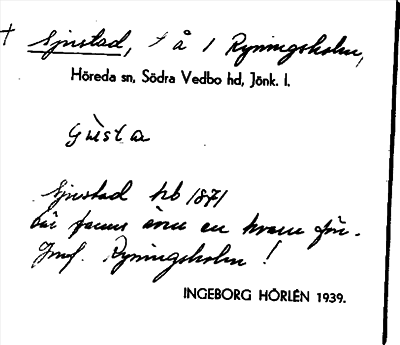 † Sjustad, † å 1 Ryningsholm,
Höreda sn, Södra Vedbo hd, Jönk. l.
Gùsta
Sjustad hb 1871
där fanns även en kvarn för.
Jmf. Ryningsholm!
INGEBORG HÖRLÉN 1939.